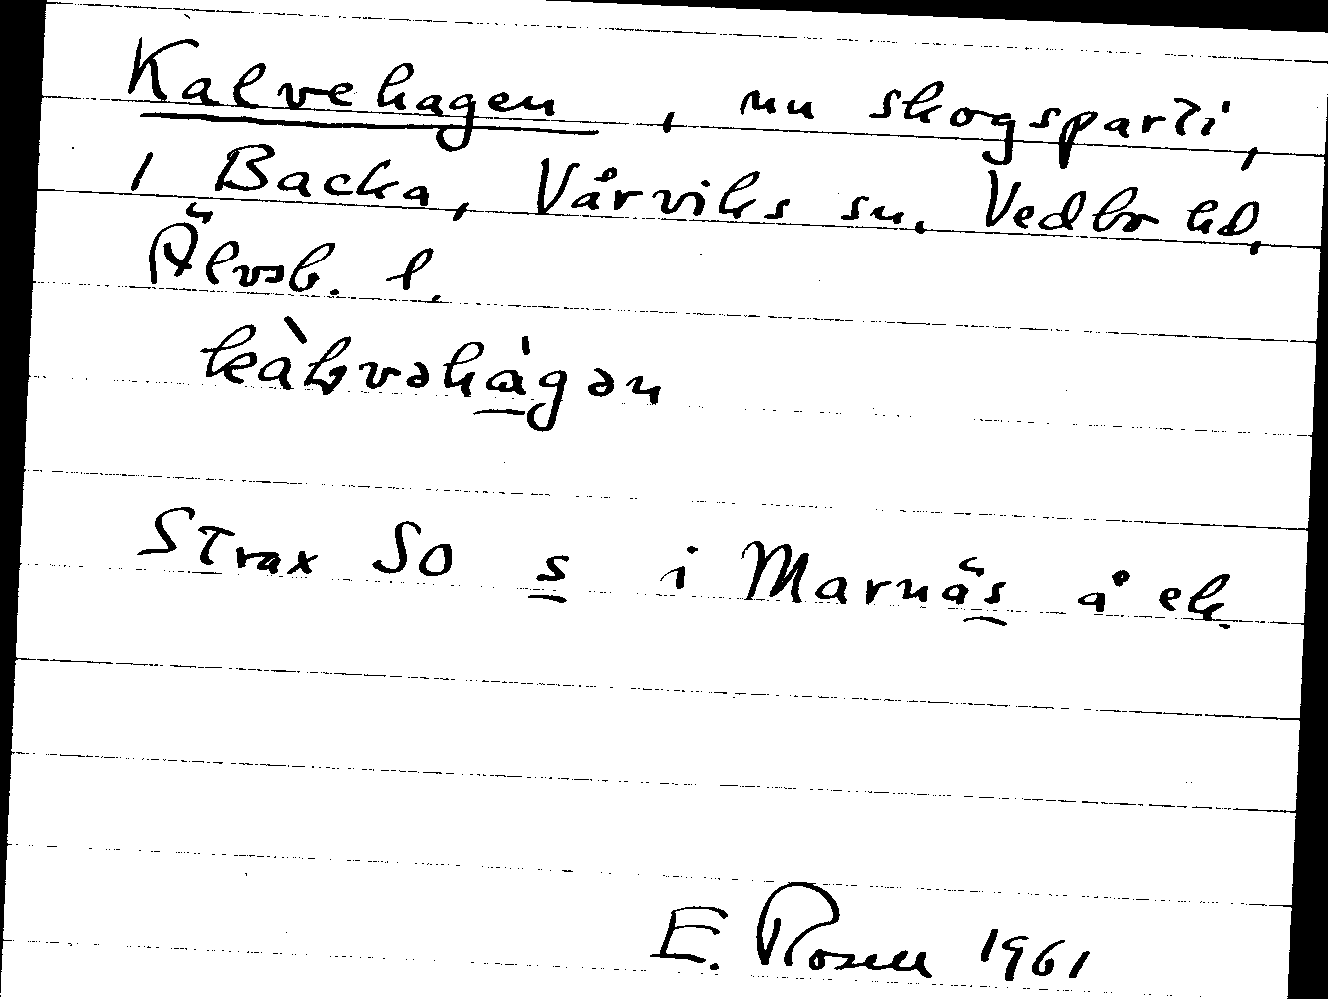 Kalvehagen, nu skogsparti,
1 Backa, Vårviks sn. Vedbo hd,
Älvsb. l.
kàl̥vəhàgən
Strax SO s i Marnäs å ek.
E. Rosell 1961